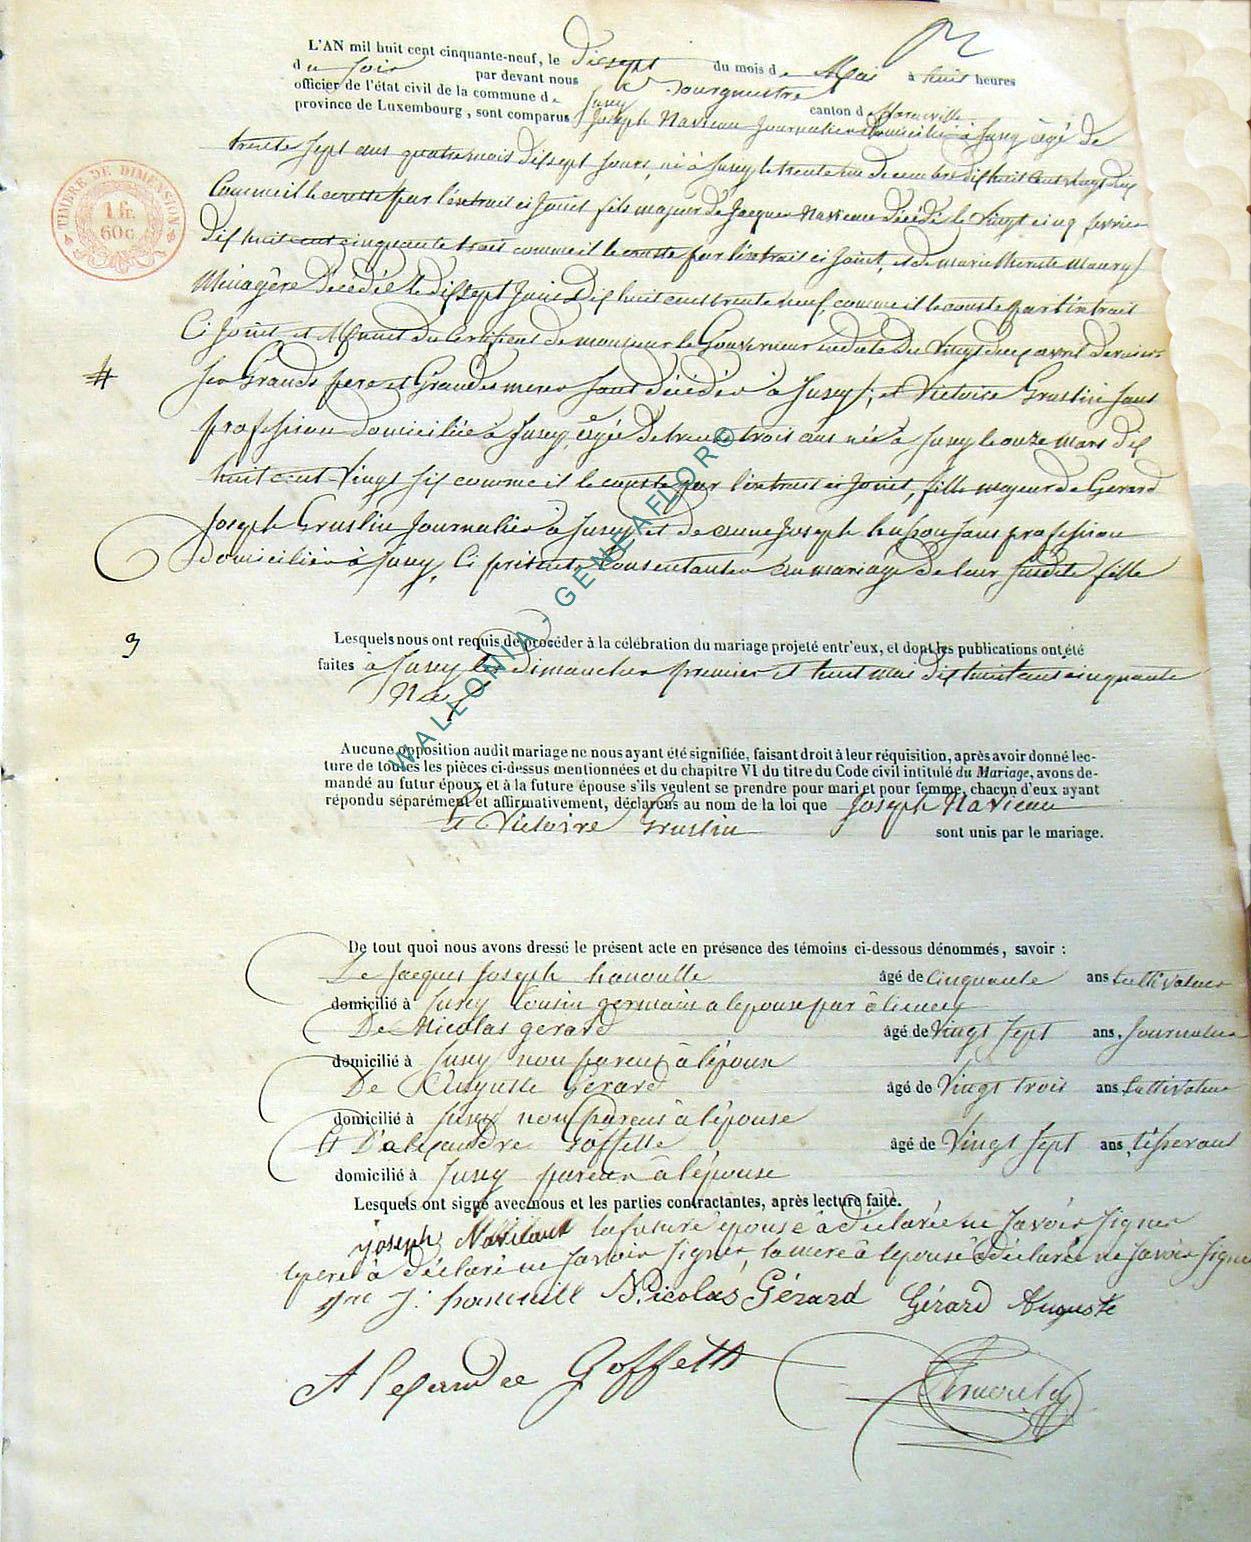 L'AN mil huit cent cinquante-neuf, le dissept du mois de Mai à huit heures
du soir par devant nous Bourgmestre
officier de l'état civil de la commune de Jusey canton de
province de Luxembourg, sont comparus Joseph Navieau Journalier domicilié à Jusey âgé de
trente sept ans quatre mois dissept jours, né à Jusey le trente un decembre dix huit cent vingt
Comme il le conste par l'extrait ci Joint fils majeur de Jacques Navieau décédé le vingt cinq fevrier
dix huit cent cinquante trois comme il le conste par l'extrait ci Joint, et de marie
Ménagère décédée le dissept Juin dix huit cent trente neuf, comme il le conste par l'extrait
Ci Joint et Munit du Certificat de monsieur le Gouverneur endate du Vingt avril dernier
Ses Grands pere et Grandes meres sont décédés à Jusey, et Victoire Gruslin sans
profession domiciliée à Jusey, âgée de trente trois ans née à Jusey le onze Mars dix
huit cent Vingt six comme il le conste par l'extrait ci Joint, fille majeur de Gerard
Joseph Gruslin Journalier à Jusey et de anne Joseph sans profession
domiciliés à Jusey, Ci présents Consentantes au mariage de leur susdite fille
Lesquels nous ont requis de procéder à la célébration du mariage projeté entr'eux, et dont les publications ont été
faites à Jusey les dimanches premier et huit mai dix huit cent cinquante
Neuf
Aucune opposition audit mariage ne nous ayant été signifiée, faisant droit à leur réquisition, après avoir donné lec-
ture de toutes les pièces ci-dessus mentionnées et du chapitre VI du titre du Code civil intitulé du Mariage, avons de-
mandé au futur époux et à la future épouse s'ils veulent se prendre pour mari et pour femme, chacun d'eux ayant
répondu séparément et affirmativement, déclarons au nom de la loi que Joseph Navieau
et Victoire Gruslin sont unis par le mariage.
De tout quoi nous avons dressé le présent acte en présence des témoins ci-dessous dénommés, savoir :
De Jacques Joseph âgé de Cinquante ans Cultivateur
domicilié à Jusey Cousin germain a lepouse par
De Nicolas gerard âgé de Vingt sept ans, Journalier
domicilié à Jusey non parent à l'époux
De Auguste Gérard âgé de Vingt trois ans Cultivateur
domicilié à Jusey non parens à l'épouse
Et D'alexandre Goffette âgé de Vingt sept ans, tisserant
domicilié à Jusey parent à l'épouse
Lesquels ont signé avec nous et les parties contractantes, après lecture faite.
Joseph la future épouse à déclarée ne savoir signer
le pere à déclaré ne savoir signer, la mere à lepouse à déclarée ne savoir signer
Nicolas Gérard Gérard Auguste
Alexandre Goffette
TIMBRE DE DIMENSION
1 fr.
60 c.
WALLONIA - GENEAFLOR©